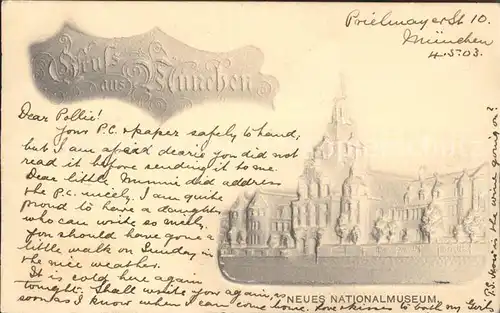 Prielmayer St 10.
München
4.5.03.
Gruß
aus München
Dear Pollie!
Your P.C. & paper safely to hand,
but I am afraid dearie you did not
read it before sending it to me.
Dear little Minnie did address
the P.C. nicely. I am quite
proud to have a daughter
who can write so nicely.
You should have gone a
little walk on Sunday in
the nice weather.
It is cold here again
tonight. Shall write you again, as
soon as I know when I can come home. Love & kisses to both my Girls
NEUES NATIONALMUSEUM.
P.S. How is the wine going on?